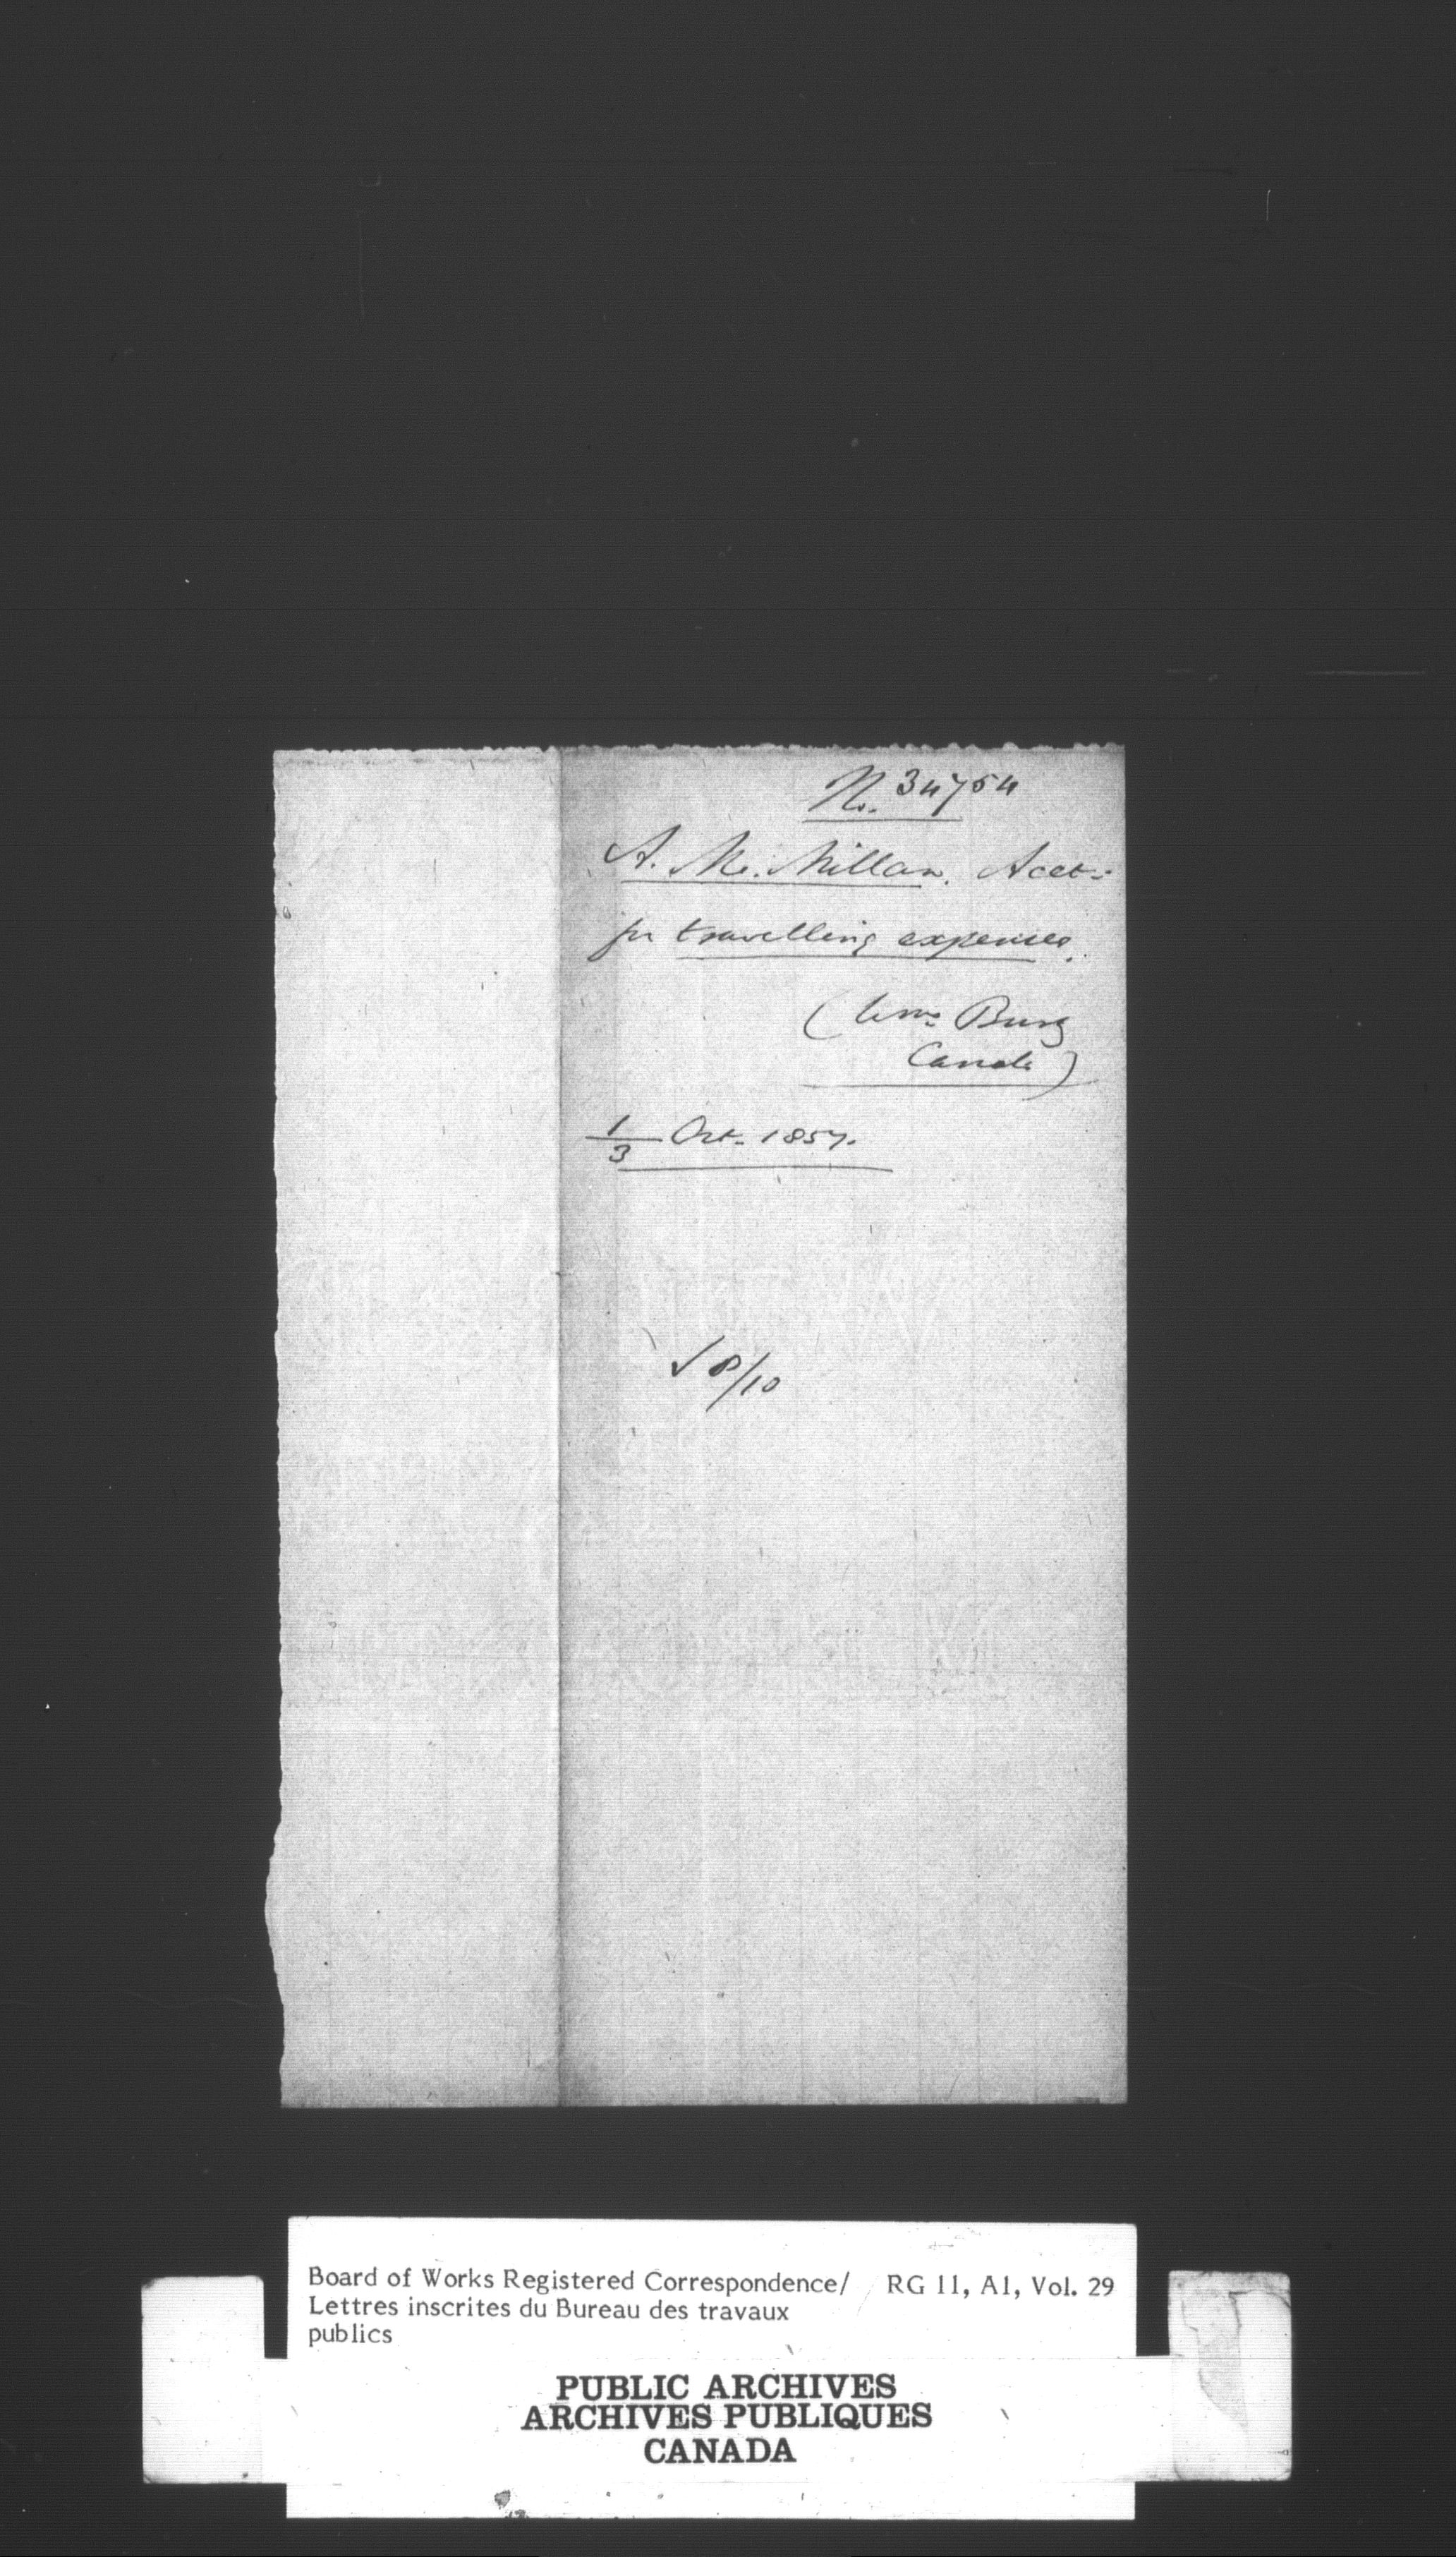 No. 34754
A. McMillan. Acct:
for travelling expenses.
(Wms Burg
Canals)
1/3 Oct. 1857.
√ 8/10
Board of Works Registered Correspondence/ RG 11, A1, Vol. 29
Lettres inscrites du Bureau des travaux
publics
PUBLIC ARCHIVES
ARCHIVES PUBLIQUES
CANADA